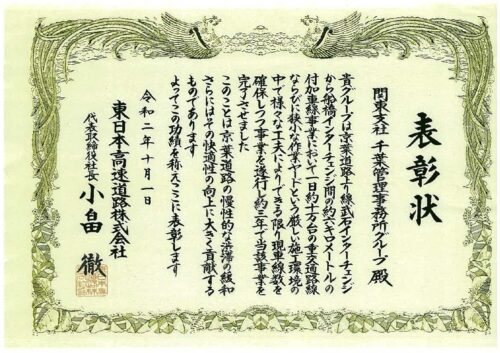 表彰状
関東支社 千葉管理事務所グループ 殿
貴グループは京葉道路下り線武石インターチェンジ
から船橋インターチェンジ間の約六キロメートルの
付加車線事業において一日約十万台の重交通路線
ならびに狭小な作業ヤードという厳しい施工環境の
中で様々な工夫によりできる限り現車線数を
確保しつつ事業を遂行し約三年で当該事業を
完了させました
このことは京葉道路の慢性的な渋滞の緩和
さらにはその快適性の向上に大きく貢献する
ものであります
よってこの功績を称えここに表彰します
令和二年十月一日
東日本高速道路株式会社
代表取締役社長 小畠 徹